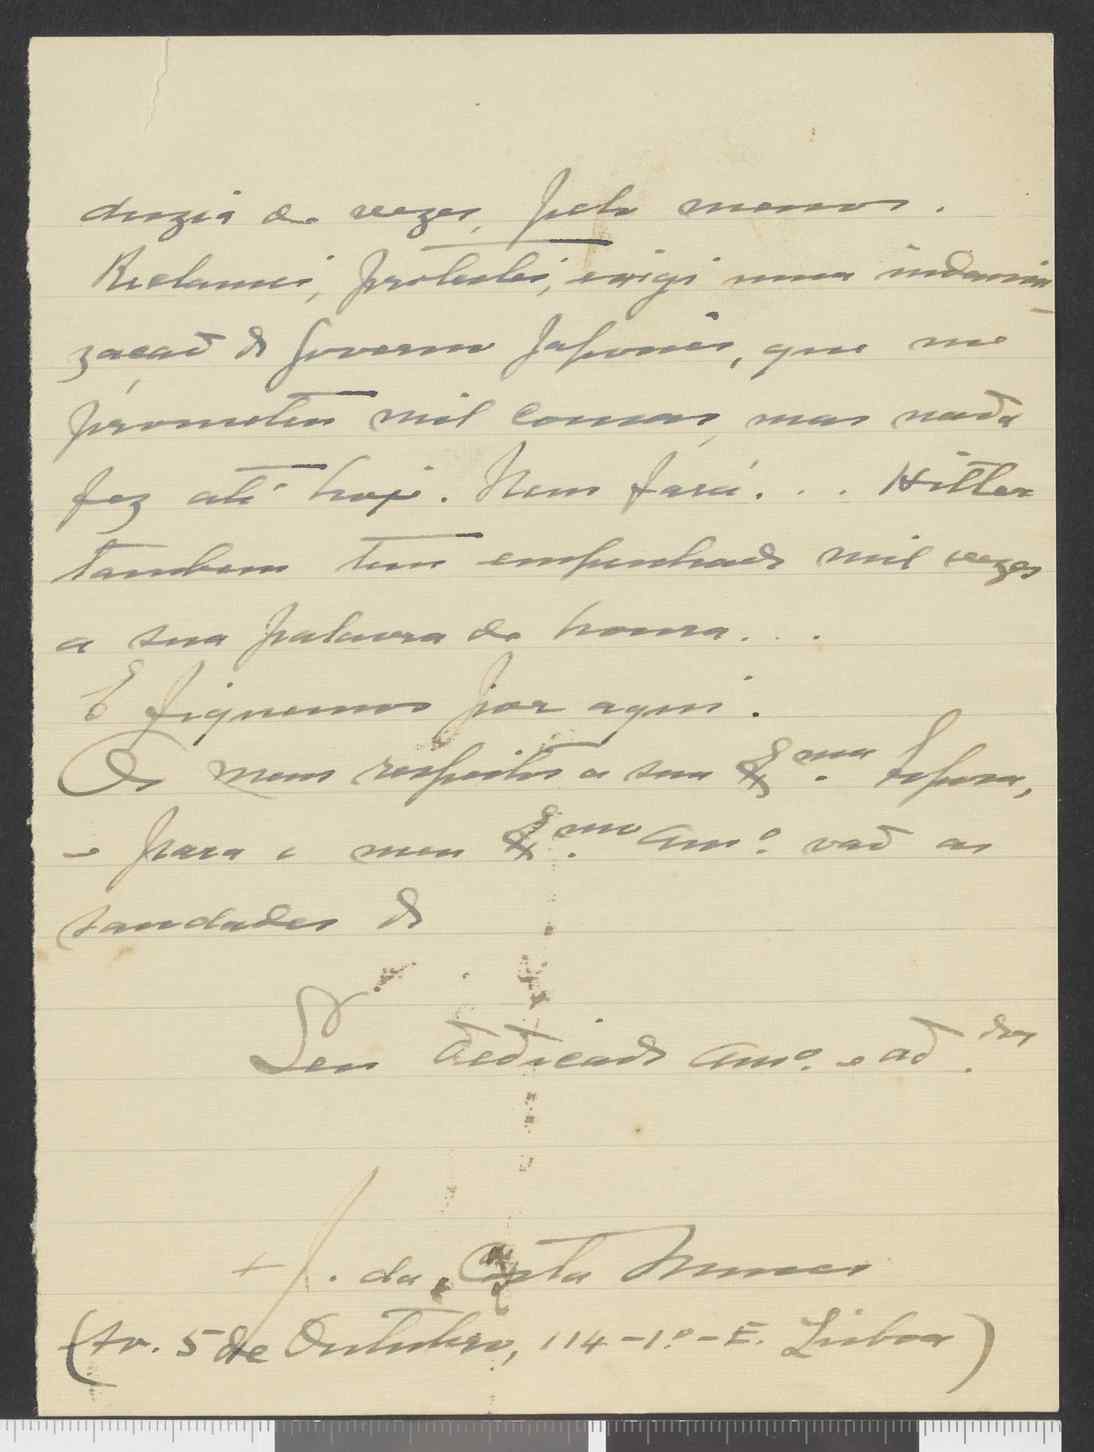 duzia de vezes, pelo menos.
Reclamei, protestei, exigi uma indemni-
zação do Governo Japonês, que me
prometeu mil cousas, mas nada
fez até hoje. Nem fará... Hitler
tambem tem empenhado mil vezes
a sua palavra de honra...
E fiquemos por aqui.
Os meus respeitos a sua Ex.ma Esposa,
e para o meu Ex.mo Am.º vão as
saudades do
Seu dedicado Am.º e ad.dor
+ J. da Costa Nunes
(Av. 5 de Outubro, 114-1.º-E. Lisboa)